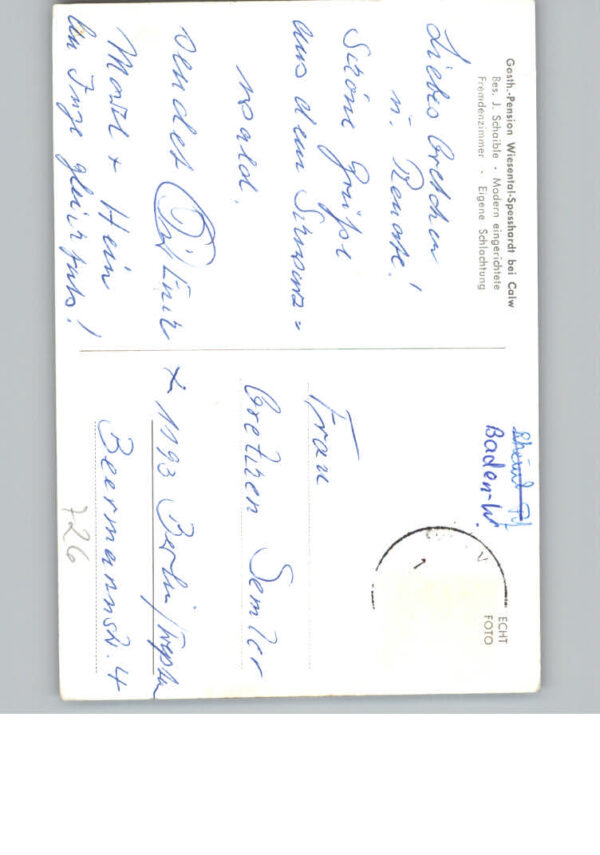 Gasth.-Pension Wiesental-Spesshardt bei Calw
Bes. J. Schaible · Modern eingerichtete
Fremdenzimmer · Eigene Schlachtung
Liebes Gretchen
u. Renate!
Schöne Grüße
aus dem Schwarz=
wald.
sendet
+
Martl + Hein
Inge gleichfalls!
Baden-W.
ECHT
FOTO
Frau
Gretchen Semler
1193 Berlin/Treptow
Beermannstr. 4
726